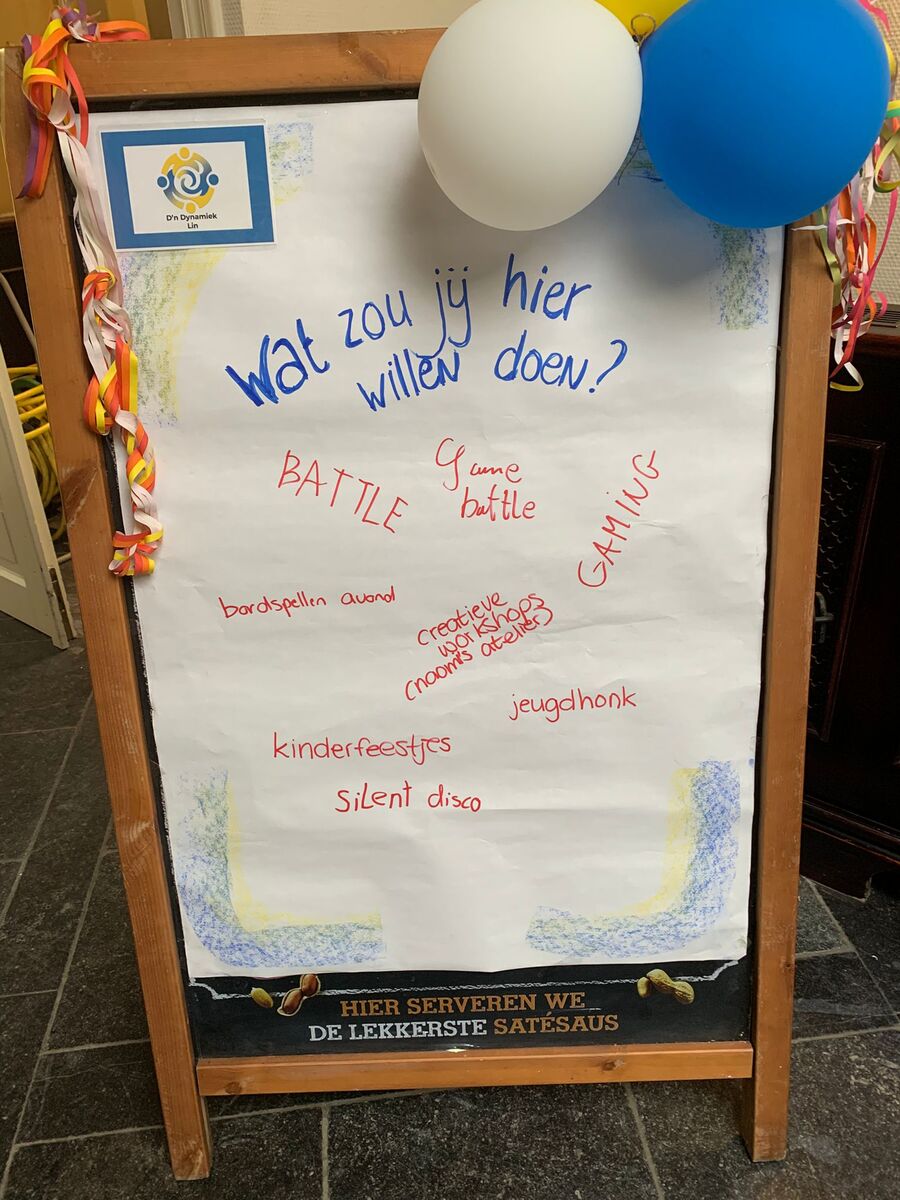 D'n Dynamiek
Lin
Wat zou jij hier
willen doen?
BATTLE
Game
battle
GAMING
bordspellen avond
creatieve
workshops
(naomi's atelier)
jeugdhonk
kinderfeestjes
Silent disco
HIER SERVEREN WE
DE LEKKERSTE SATÉSAUS